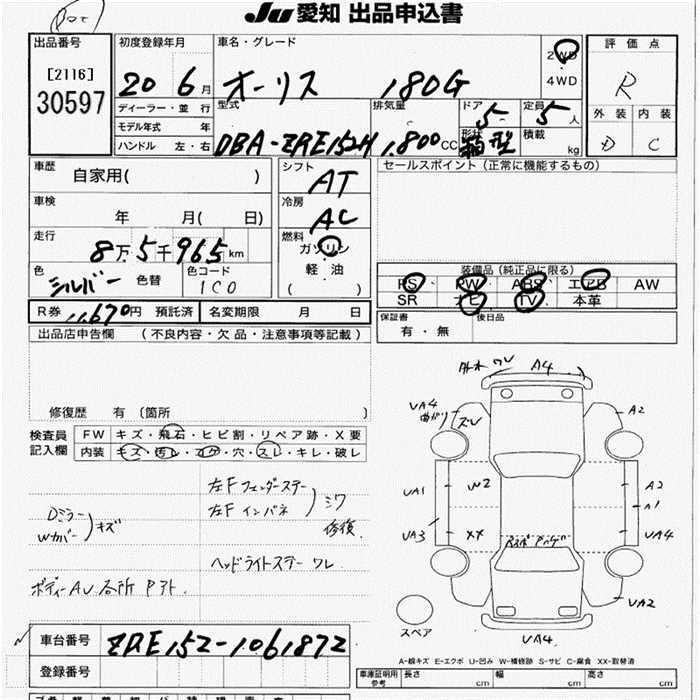 Ju 愛知 出品申込書
出品番号
[2116]
30597
初度登録年月
20 6月
ディーラー・並 行
モデル年式 年
ハンドル 左・右
車名・グレード
オーリス 180G
2WD
4WD
型式
DBA-ZRE152H
排気量
1.800cc
ドア
5
形状
箱型
定員
5人
積載
kg
評価点
R
外装 内装
D C
車歴
自家用( )
車検
年 月( 日)
走行
8万5千965km
色
シルバー
色替
色コード
1C0
シフト
AT
冷房
AC
燃料
ガソリン
軽 油
( )
セールスポイント (正常に機能するもの)
装備品 (純正品に限る)
PS PW ABS エアB AW
SR ナビ TV 本革
R券 11,670円 預託済 名変期限 月 日
保証書
有・無
後日品
出品店申告欄 (不良内容・欠品・注意事項等記載)
修復歴 有 〔箇所 〕
検査員
記入欄
FW キズ・飛石・ヒビ割・リペア跡・X要
内装 キズ・汚レ・コゲ・穴・スレ・キレ・破レ
Dミラー
Wカバー
キズ
左Fフェンダーステー
左Fインパネ
シワ
修復
ヘッドライトステー ワレ
ボディーAU各所
外木 ワレ A4
UA4
曲がり
ズレ
A2
UA1
W2
A2
A1
UA3
XX
UA4
UA2
UA4
スペア
A-線キズ E-エクボ U-凹み W-補修跡 S-サビ C-腐食 XX-取替済
車台番号
ZRE152-1061872
登録番号
車庫証明用
参考
長さ cm 幅 cm 高さ cm